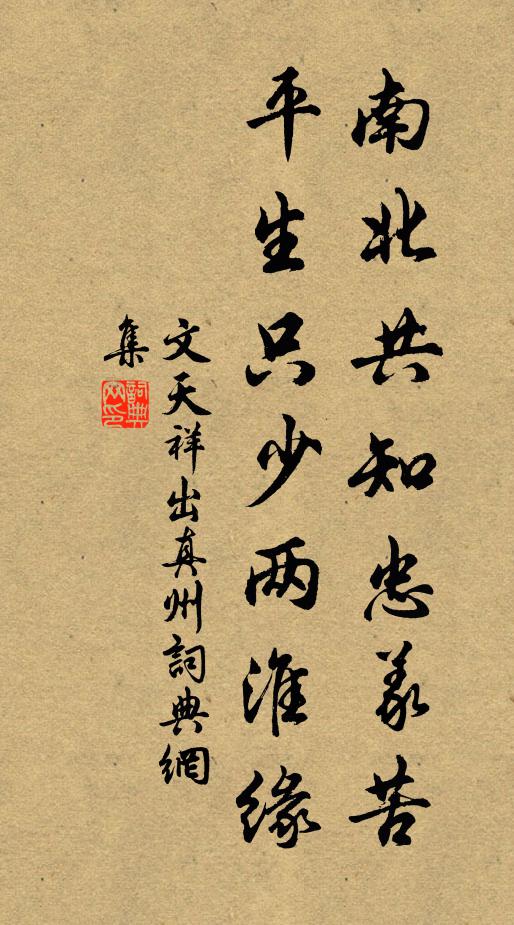 南北共知忠义苦
平生只少两淮缘
文天祥出真州詞典網
集
詞典網印